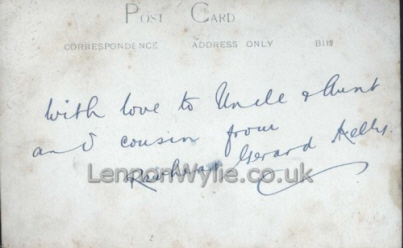 POST CARD
CORRESPONDENCE ADDRESS ONLY
With love to Uncle & Aunt
and cousin from
Gerard Kelly.
LennonWylie.co.uk